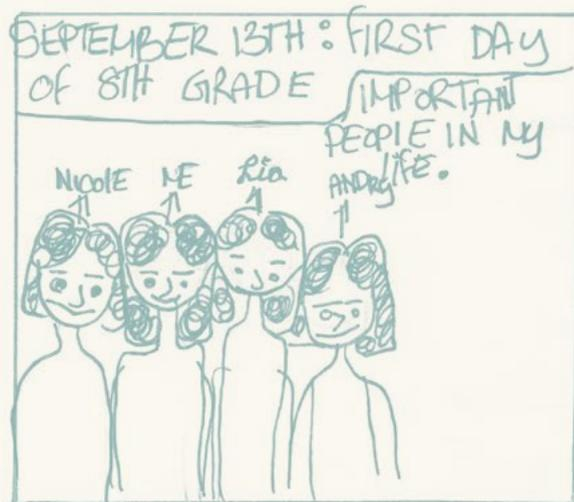 SEPTEMBER 13TH: FIRST DAY
OF 8TH GRADE
IMPORTANT
PEOPLE IN MY
LIFE.
NICOLE
ME
Lia
ANDRY